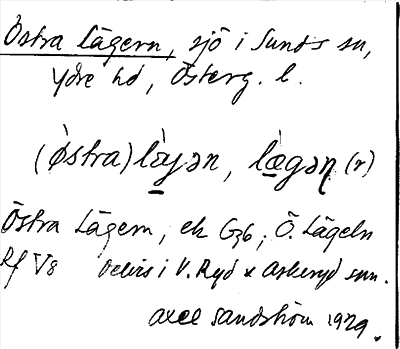 Östra Lägern, sjö i Sunds sn,
Ydre hd, Österg. l.
(östra) làgən, lægəɳ (r)
Östra Lägern, ek G36; Ö. Lägeln
Rf V8 delvis i V. Ryd x Asberyd snn.
Axel Sandström 1929.